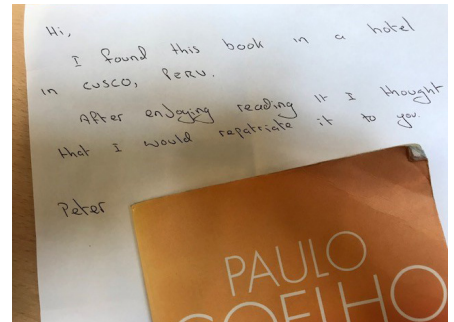 Hi,
I found this book in a hotel
in CUSCO, PERU.
After enjoying reading it I thought
that I would repatriate it to you.
Peter
PAULO
COELHO